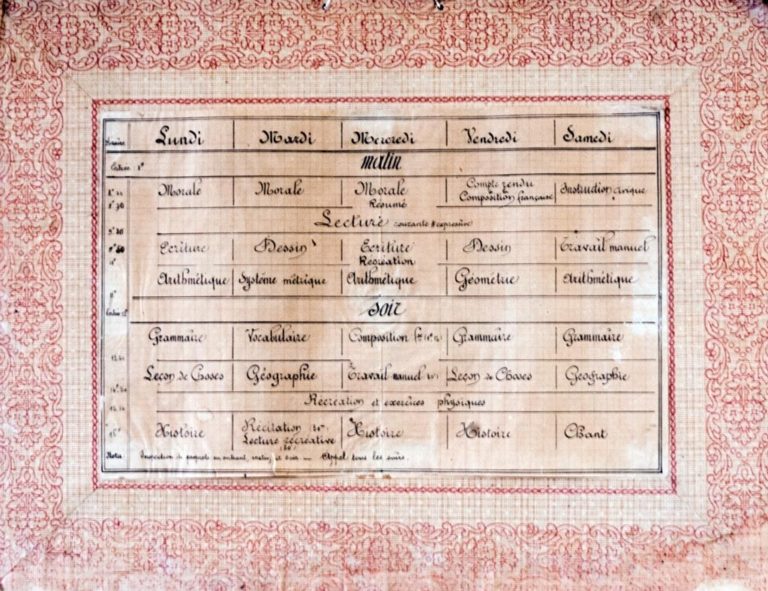 Lundi Mardi Mercredi Vendredi Samedi
matin
Morale Morale Morale Compte rendu Instruction civique
Résumé Composition française
Lecture courante & expressive
Ecriture Dessin Ecriture Dessin Travail manuel
Récréation
Arithmétique Système métrique Arithmétique Géométrie Arithmétique
Soir
Grammaire Vocabulaire Composition Grammaire Grammaire
Leçon de Choses Géographie Travail manuel Leçon de Choses Géographie
Récréation et exercices physiques
Histoire Récitation Histoire Histoire Chant
Lecture récréative
Nota Inspection de propreté en entrant, matin et soir — Appel tous les soirs.